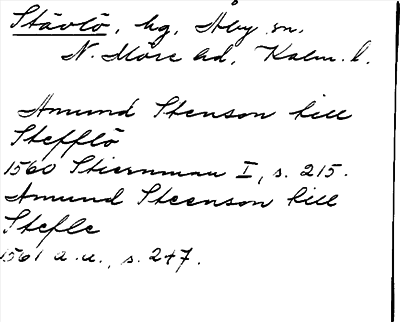 Stävlö, hg, Åby sn.
N. Möre hd, Kalm. l.
Amund Stenson till
Stefflö
1560 Stiernman I, s. 215.
Amund Steenson till
Stefle
1561 a.a., s. 247.